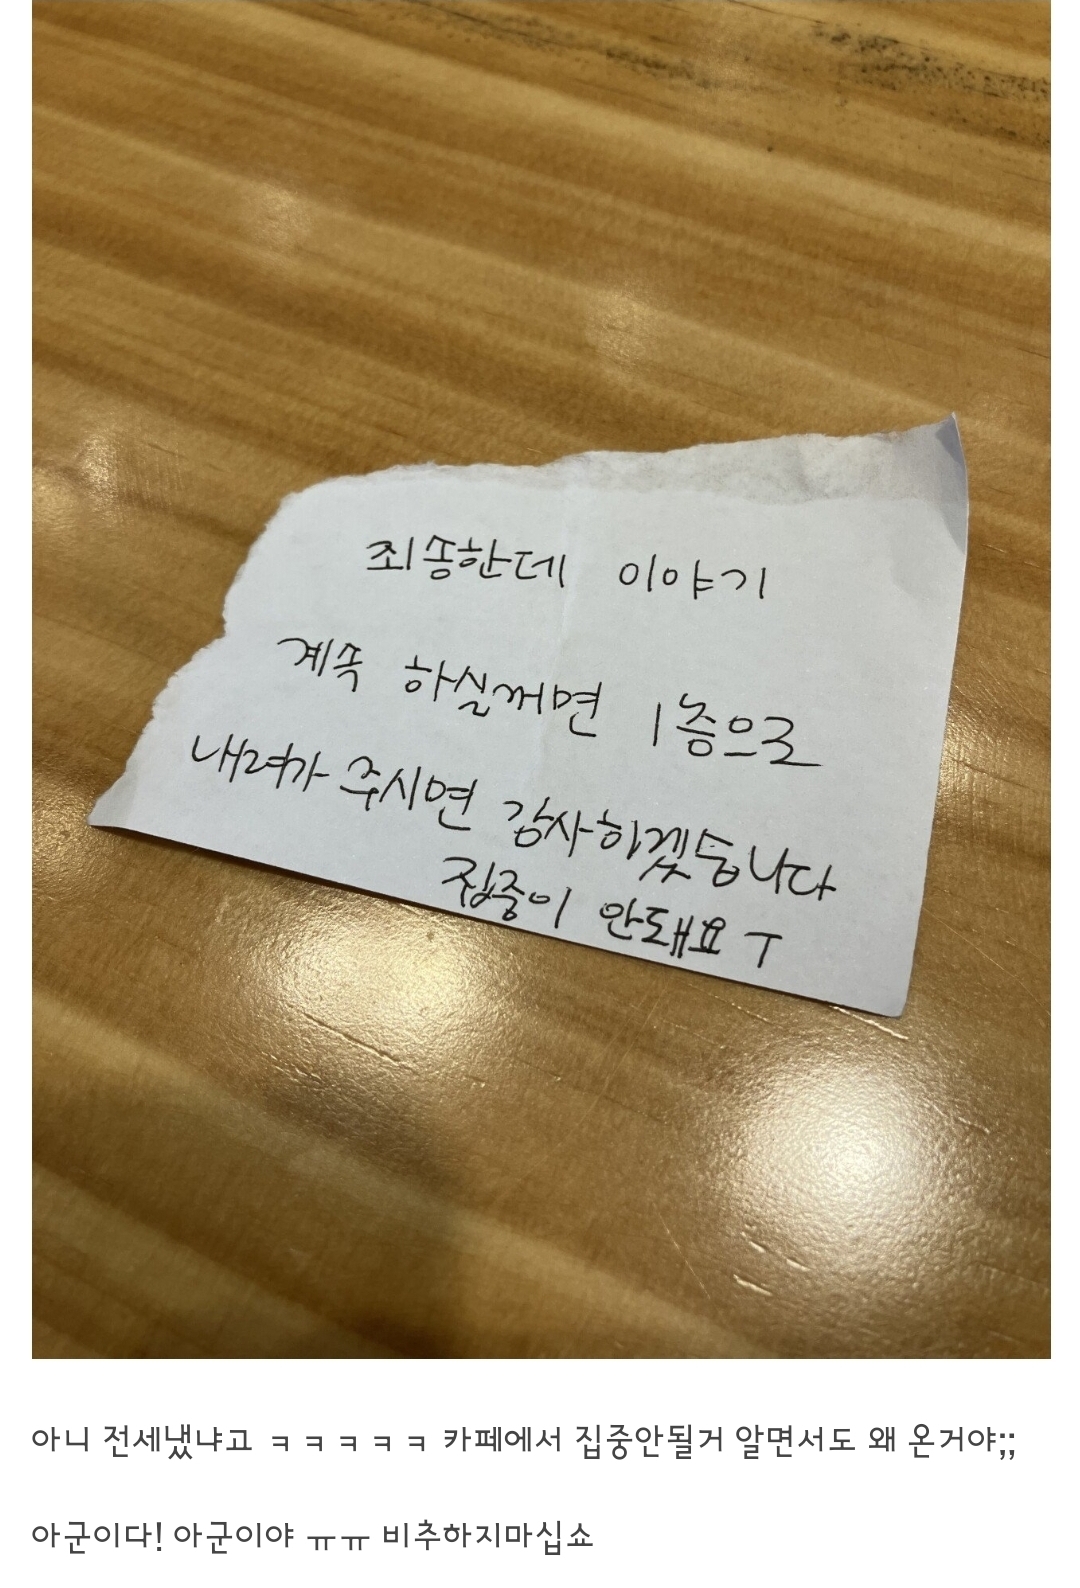 죄송한데 이야기
계속 하실꺼면 1층으로
내려가 주시면 감사하겠습니다
집중이 안돼요ㅜ
아니 전세냈냐고 ㅋㅋㅋㅋㅋ 카페에서 집중안될거 알면서도 왜 온거야;;
아군이다! 아군이야 ㅠㅠ 비추하지마십쇼